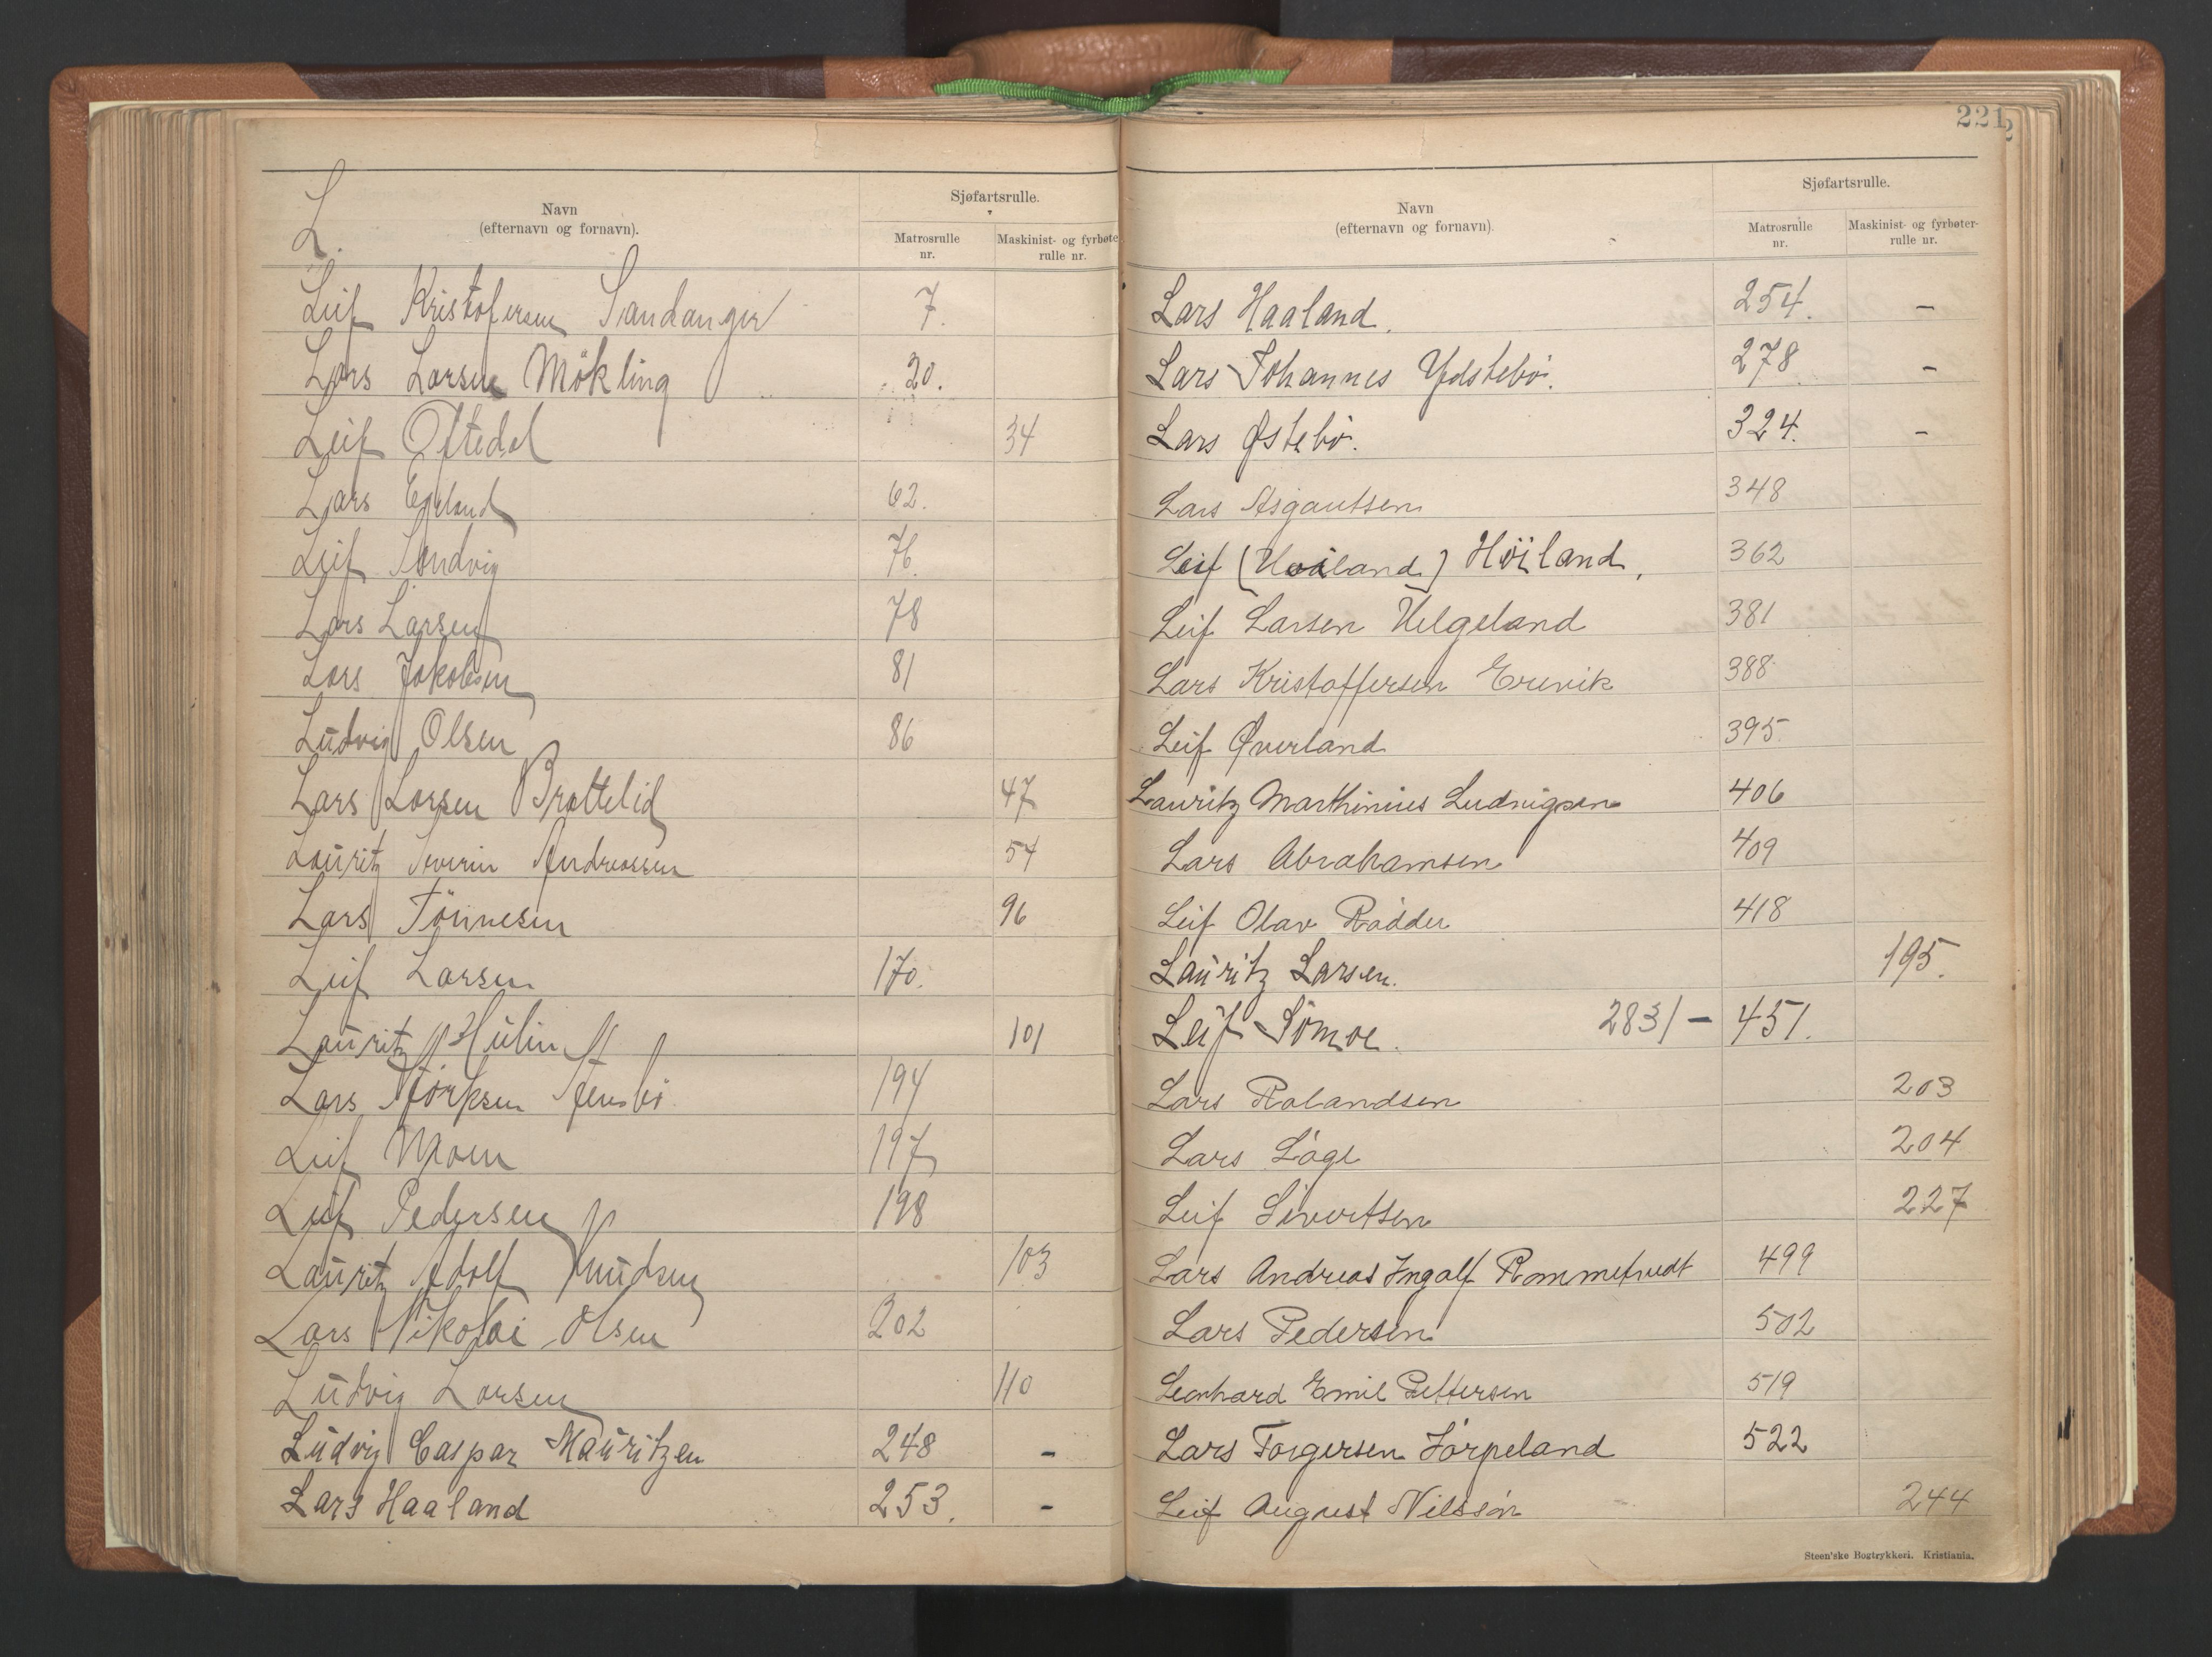 L.
Navn
(efternavn og fornavn).
Sjøfartsrulle.
Matrosrulle
nr.
Maskinist- og fyrbøter-
rulle nr.
Leif Kristofersen Sandanger 7.
Lars Larsen Mökling 20.
Leif Oftedal 34
Lars Egeland 62.
Leif Sandvig 76.
Lars Larsen 78
Lars Jakobsen 81
Ludvig Olsen 86
Lars Larsen Brattelid 47
Lauritz Severin Andreassen 54
Lars Tönnesen 96
Leif Larsen 170.
Lauritz Hülin 101
Lars 194
Leif Moen 197
Leif Pedersen 198
Lauritz Adolf Knudsen 103
Lars Nikolai Olsen 202
Ludvig Larsen 110
Ludvig Caspar Mauritzen 248 -
Lars Haaland 253. -
221
Navn
(efternavn og fornavn).
Sjøfartsrulle.
Matrosrulle
nr.
Maskinist- og fyrbøter-
rulle nr.
Lars Haaland. 254. -
Lars Johannes Ydstebö. 278 -
Lars Østebö. 324. -
Lars Asgautsen 348
Leif (Høiland) Höiland. 362
Leif Larsen Helgeland 381
Lars Kristoffersen Erevik 388
Leif Øverland 395
Lauritz Marthinius Ludvigsen 406
Lars Abrahamsen 409
Leif Olav Rådder 418
Lauritz Larsen. 195.
Leif Sömoe. 283/- 451.
Lars Rolandsen 203
Lars Låge 204
Leif Sivertsen 227
Lars Andreas Ingolf Rommetvedt 499
Lars Pedersen 502
Leonhard Emil Pettersen 519
Lars Torgersen Jörpeland 522
Leif August Nilssön 244
Steen'ske Bogtrykkeri. Kristiania.